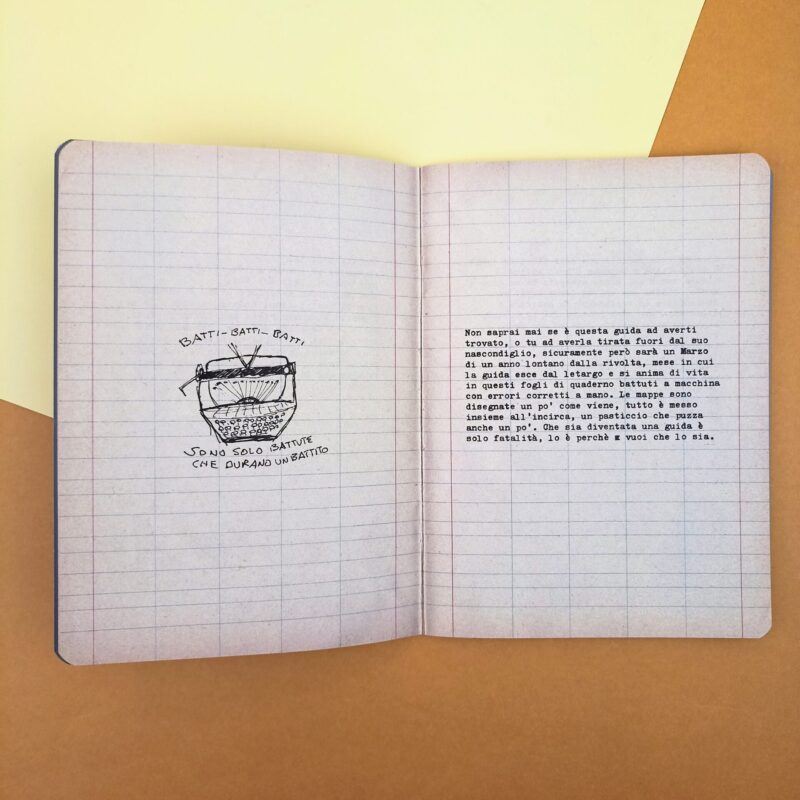 BATTI-BATTI-BATTI
SONO SOLO BATTUTE
CHE DURANO UN BATTITO
Non saprai mai se è questa guida ad averti
trovato, o tu ad averla tirata fuori dal suo
nascondiglio, sicuramente però sarà un Marzo
di un anno lontano dalla rivolta, mese in cui
la guida esce dal letargo e si anima di vita
in questi fogli di quaderno battuti a macchina
con errori corretti a mano. Le mappe sono
disegnate un po' come viene, tutto è messo
insieme all'incirca, un pasticcio che puzza
anche un po'. Che sia diventata una guida è
solo fatalità, lo è perchè vuoi che lo sia.